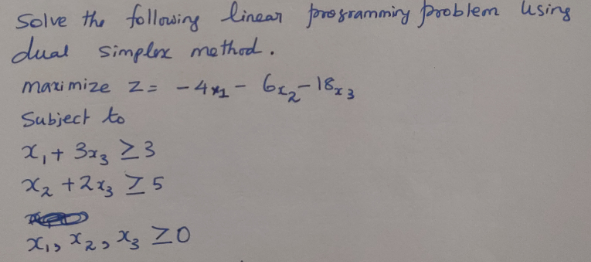 Solve the following linear programming problem using
dual simplex method.
maximize z = -4x₁ - 6x₂ - 18x₃
Subject to
x₁ + 3x₃ ≥ 3
x₂ + 2x₃ ≥ 5
x₁, x₂, x₃ ≥ 0